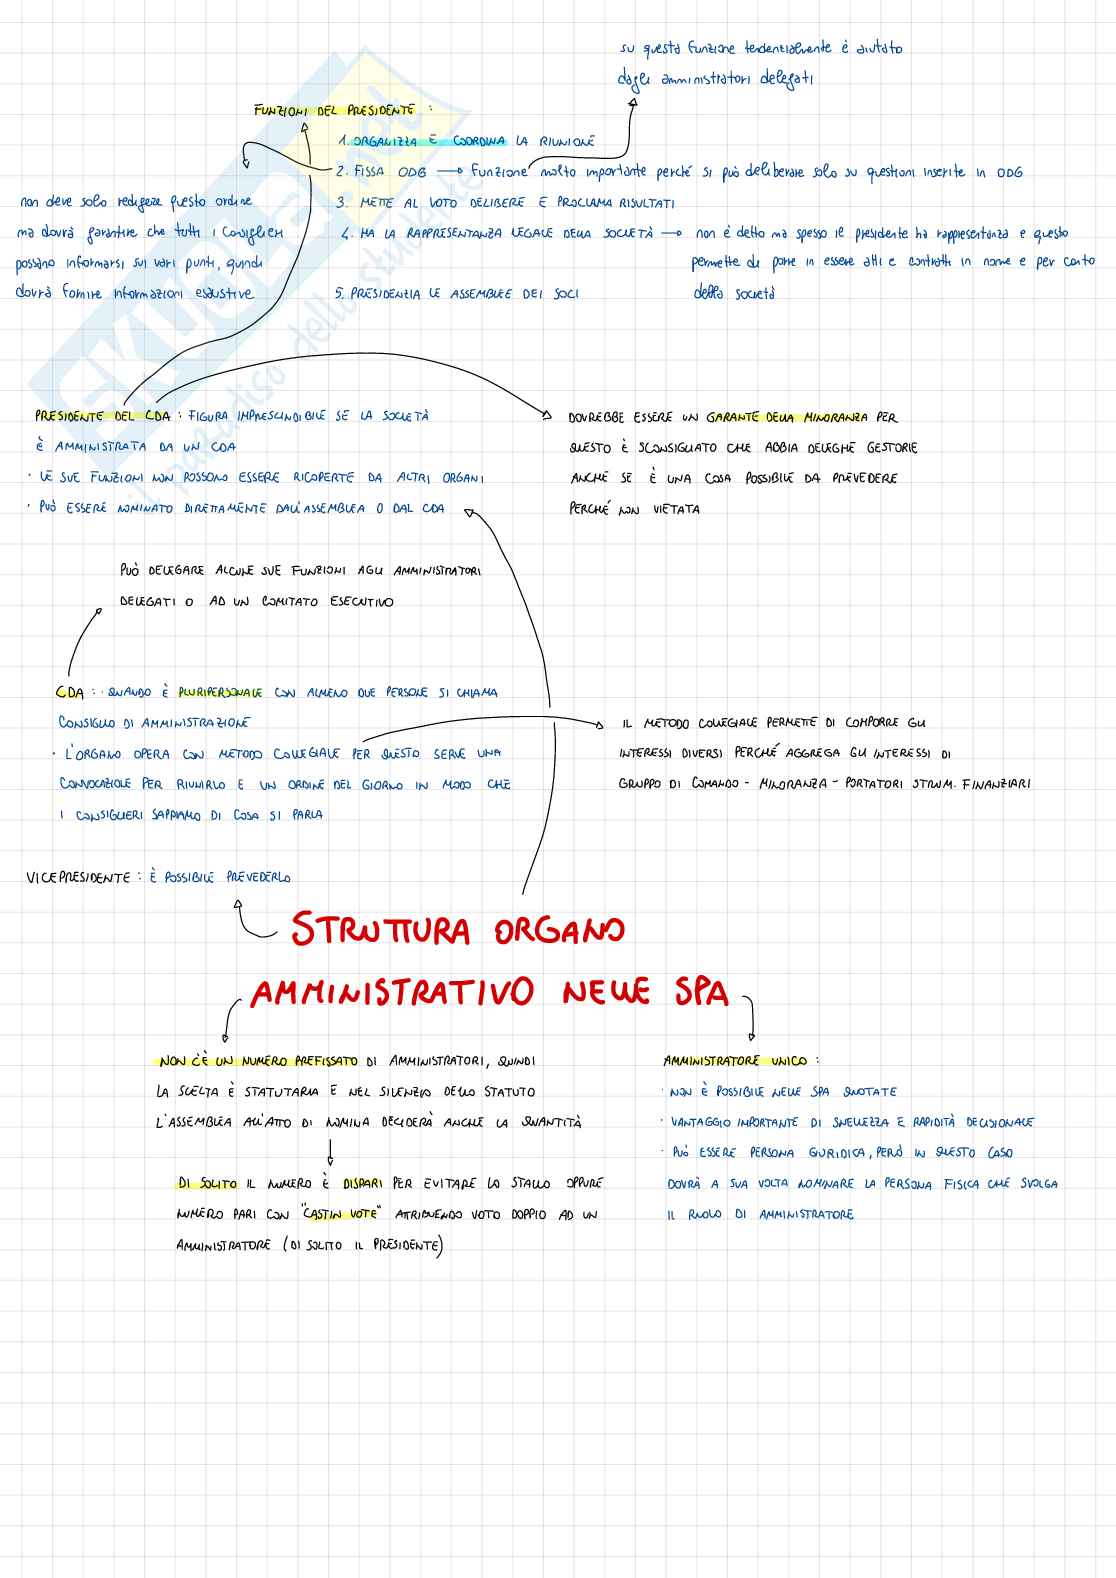 su questa funzione tendenzialmente è aiutato
dagli amministratori delegati
FUNZIONI DEL PRESIDENTE :
1. ORGANIZZA E COORDINA LA RIUNIONE
2. FISSA ODG → funzione molto importante perché si può deliberare solo su questioni inserite in ODG
3. METTE AL VOTO DELIBERE E PROCLAMA RISULTATI
4. HA LA RAPPRESENTANZA LEGALE DELLA SOCIETÀ → non è detto ma spesso il presidente ha rappresentanza e questo
permette di porre in essere atti e contratti in nome e per conto
della società
5. PRESIDENZIA LE ASSEMBLEE DEI SOCI
non deve solo redigere questo ordine
ma dovrà garantire che tutti i consiglieri
possano informarsi sui vari punti, quindi
dovrà fornire informazioni esaustive
SKUOLA.net
il paradiso dello studente
PRESIDENTE DEL CDA : FIGURA IMPRESCINDIBILE SE LA SOCIETÀ
È AMMINISTRATA DA UN CDA
· LE SUE FUNZIONI NON POSSONO ESSERE RICOPERTE DA ALTRI ORGANI
· PUÒ ESSERE NOMINATO DIRETTAMENTE DALL'ASSEMBLEA O DAL CDA
DOVREBBE ESSERE UN GARANTE DELLA MINORANZA PER
QUESTO È SCONSIGLIATO CHE ABBIA DELEGHE GESTORIE
ANCHE SE È UNA COSA POSSIBILE DA PREVEDERE
PERCHÉ NON VIETATA
PUÒ DELEGARE ALCUNE SUE FUNZIONI AGLI AMMINISTRATORI
DELEGATI O AD UN COMITATO ESECUTIVO
CDA : · QUANDO È PLURIPERSONALE CON ALMENO DUE PERSONE SI CHIAMA
CONSIGLIO DI AMMINISTRAZIONE
· L'ORGANO OPERA CON METODO COLLEGIALE PER QUESTO SERVE UNA
CONVOCAZIONE PER RIUNIRLO E UN ORDINE DEL GIORNO IN MODO CHE
I CONSIGLIERI SAPPIAMO DI COSA SI PARLA
IL METODO COLLEGIALE PERMETTE DI COMPORRE GLI
INTERESSI DIVERSI PERCHÉ AGGREGA GLI INTERESSI DI
GRUPPO DI COMANDO - MINORANZA - PORTATORI STRUM. FINANZIARI
VICEPRESIDENTE : È POSSIBILE PREVEDERLO
STRUTTURA ORGANO
AMMINISTRATIVO NELLE SPA
NON C'È UN NUMERO PREFISSATO DI AMMINISTRATORI, QUINDI
LA SCELTA È STATUTARIA E NEL SILENZIO DELLO STATUTO
L'ASSEMBLEA ALL'ATTO DI NOMINA DECIDERÀ ANCHE LA QUANTITÀ
DI SOLITO IL NUMERO È DISPARI PER EVITARE LO STALLO OPPURE
NUMERO PARI CON "CASTIN VOTE" ATTRIBUENDO VOTO DOPPIO AD UN
AMMINISTRATORE (DI SOLITO IL PRESIDENTE)
AMMINISTRATORE UNICO :
· NON È POSSIBILE NELLE SPA QUOTATE
· VANTAGGIO IMPORTANTE DI SNELLEZZA E RAPIDITÀ DECISIONALE
· PUÒ ESSERE PERSONA GIURIDICA, PERÒ IN QUESTO CASO
DOVRÀ A SUA VOLTA NOMINARE LA PERSONA FISICA CHE SVOLGA
IL RUOLO DI AMMINISTRATORE